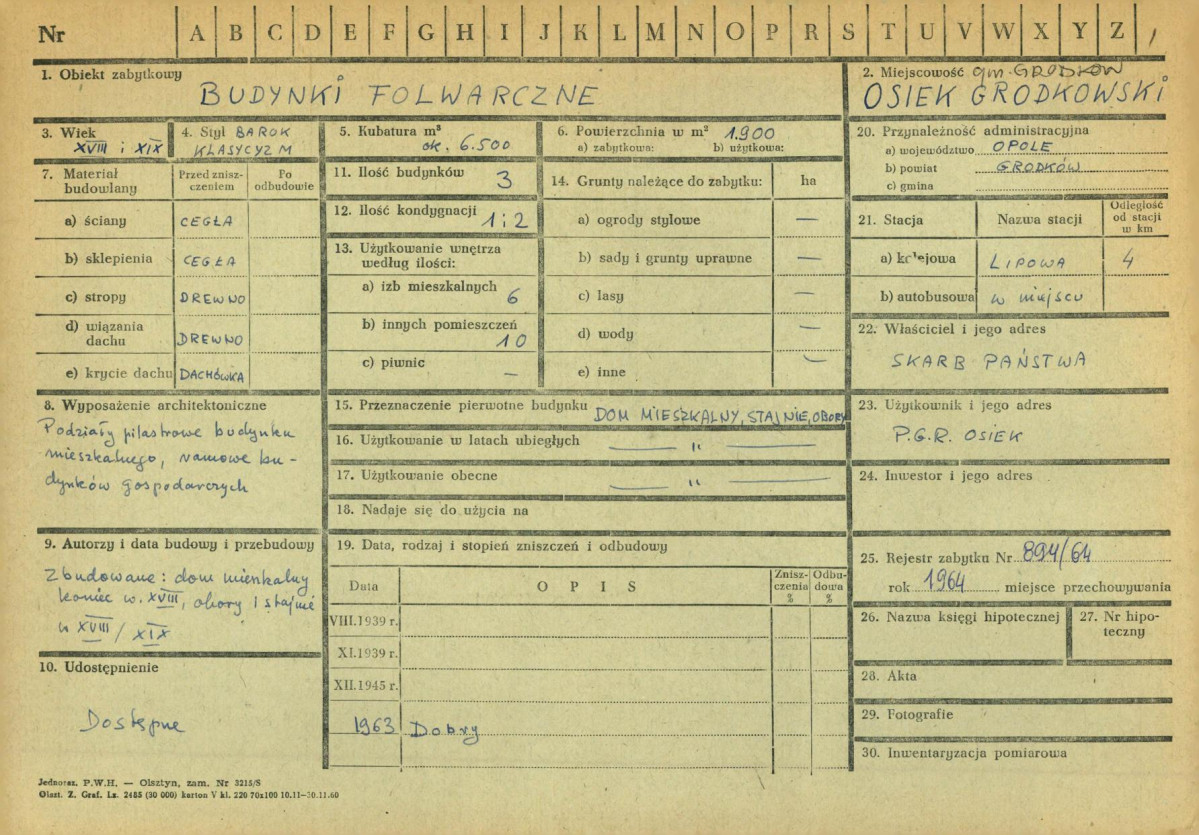 Nr A B C D E F G H I J K L M N O P R S T U V W X Y Z
1. Obiekt zabytkowy
BUDYNKI FOLWARCZNE
2. Miejscowość gm. GRODKÓW
OSIEK GRODKOWSKI
3. Wiek
XVIII i XIX
4. Styl BAROK
KLASYCYZM
5. Kubatura m³
ok. 6.500
6. Powierzchnia w m² 1.900
a) zabytkowa: b) użytkowa:
20. Przynależność administracyjna
a) województwo OPOLE
b) powiat GRODKÓW
c) gmina
7. Materiał budowlany
Przed zniszczeniem
Po odbudowie
a) ściany CEGŁA
b) sklepienia CEGŁA
c) stropy DREWNO
d) wiązania dachu DREWNO
e) krycie dachu DACHÓWKA
11. Ilość budynków 3
12. Ilość kondygnacji 1 i 2
13. Użytkowanie wnętrza
według ilości:
a) izb mieszkalnych 6
b) innych pomieszczeń 10
c) piwnic —
14. Grunty należące do zabytku: ha
a) ogrody stylowe —
b) sady i grunty uprawne —
c) lasy —
d) wody —
e) inne —
21. Stacja Nazwa stacji Odległość od stacji w km
a) kolejowa LIPOWA 4
b) autobusowa w miejscu
22. Właściciel i jego adres
SKARB PAŃSTWA
8. Wyposażenie architektoniczne
Podziały pilastrowe budynku
mieszkalnego, ramowe bu-
dynków gospodarczych
15. Przeznaczenie pierwotne budynku DOM MIESZKALNY, STAJNIE, OBORY
16. Użytkowanie w latach ubiegłych — " —
17. Użytkowanie obecne — " —
18. Nadaje się do użycia na
23. Użytkownik i jego adres
P.G.R. OSIEK
24. Inwestor i jego adres
9. Autorzy i data budowy i przebudowy
Zbudowane: dom mieszkalny
koniec w. XVIII, obory i stajnie
w XVIII/XIX
19. Data, rodzaj i stopień zniszczeń i odbudowy
Data OPIS Zniszczenia % Odbudowa %
VIII.1939 r.
XI.1939 r.
XII.1945 r.
1963 Dobry
25. Rejestr zabytku Nr 894/64
rok 1964 miejsce przechowywania
26. Nazwa księgi hipotecznej
27. Nr hipoteczny
28. Akta
29. Fotografie
30. Inwentaryzacja pomiarowa
10. Udostępnienie
Dostępne
Jednoraz. P.W.H. — Olsztyn, zam. Nr 3215/S
Olszt. Z. Graf. Lz. 2485 (30 000) karton V kl. 220 70x100 10.11—30.11.60